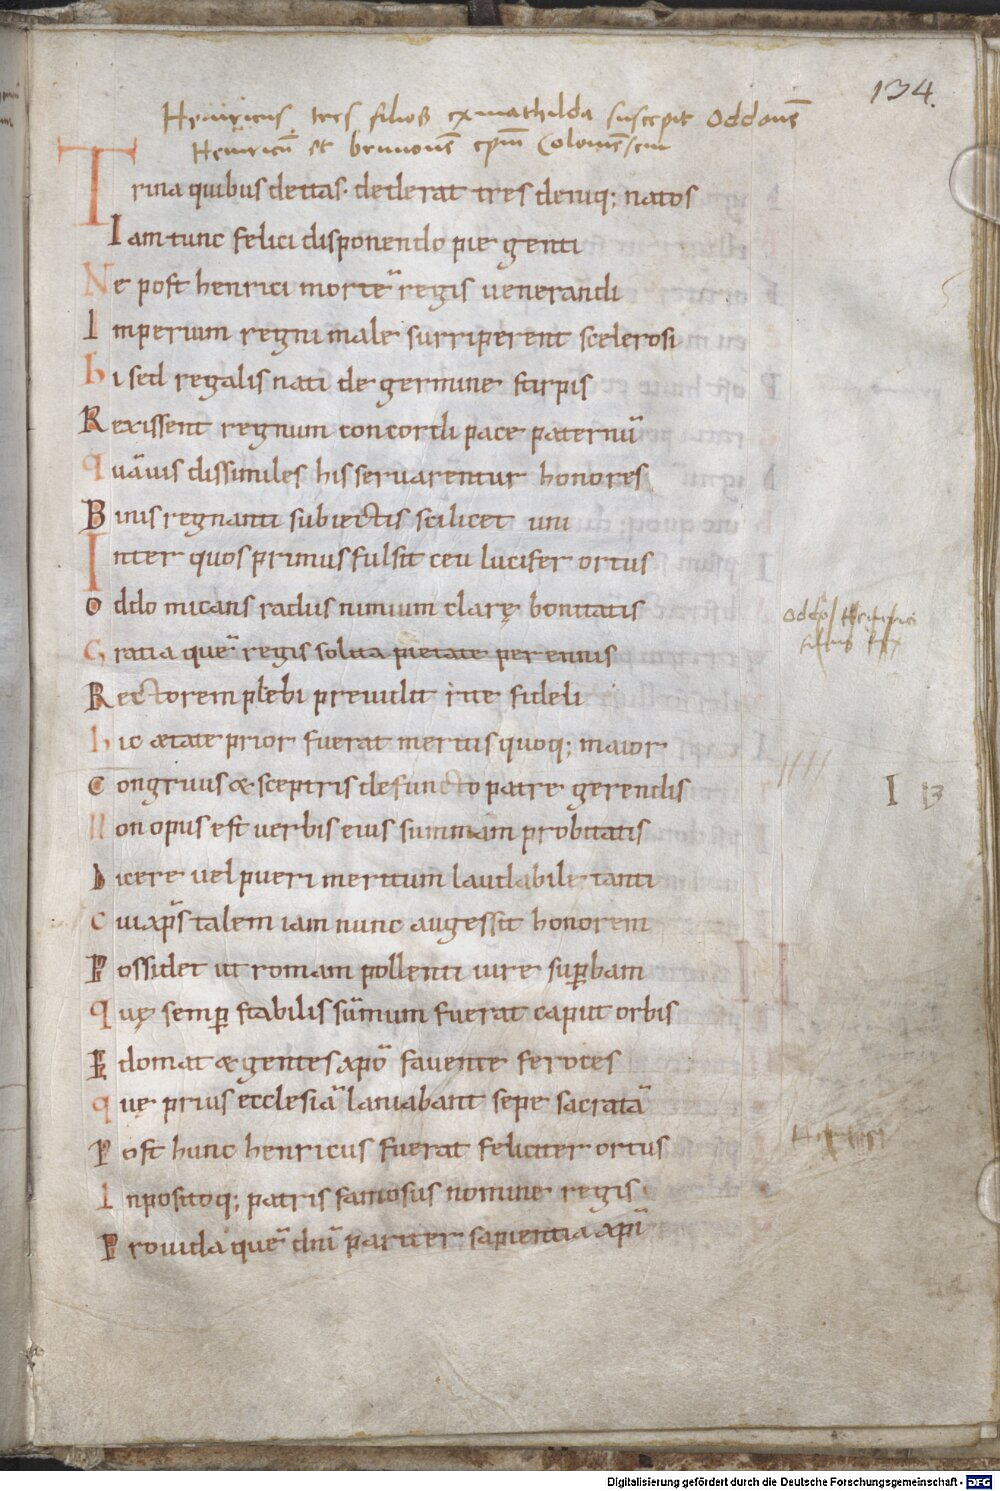 134.
Heinricus tres filios ex mathilda suscepit Oddonē
Heinricū et brunonē epm̄ Coloniēsem
Trina quibus deitas· dederat tres deniq; natos
Iam tunc felici disponendo pie genti
Ne post henrici mortē regis uenerandi
Imperium regni male surriperent scelerosi
hi sed regalis nati de germine stirpis
Rexissent regnum concordi pace paternū
quāuis dissimiles his seruarentur honores
Binis regnanti subiectis scilicet uni
Inter quos primus fulsit ceu lucifer ortus
oddo micans radiis nimium clarę bonitatis
Gratia quē regis solita pietate perennis
Rectorem plebi preuidit rite fideli
hic ætate prior fuerat meritis quoq; maior
Congruus & sceptris defuncto patre gerendis
Non opus est uerbis eius summam probitatis
Dicere uel pueri meritum laudabile tanti
Cui xp̄s talem iam nunc augessit honorem
Possidet ut romam pollenti iure sup̄bam
quę semp̄ stabilis sūmum fuerat caput orbis
Edomat & gentes xpō fauente feroces
quę prius ecclesiā laniabant sepe sacratā
Post hunc henricus fuerat feliciter ortus
Inpositoq; patris famosus nomine regis
Prouida quē dn̄i pariter sapientia xp̄i
Oddo Heinrici
filius
I 13
Digitalisierung gefördert durch die Deutsche Forschungsgemeinschaft - DFG